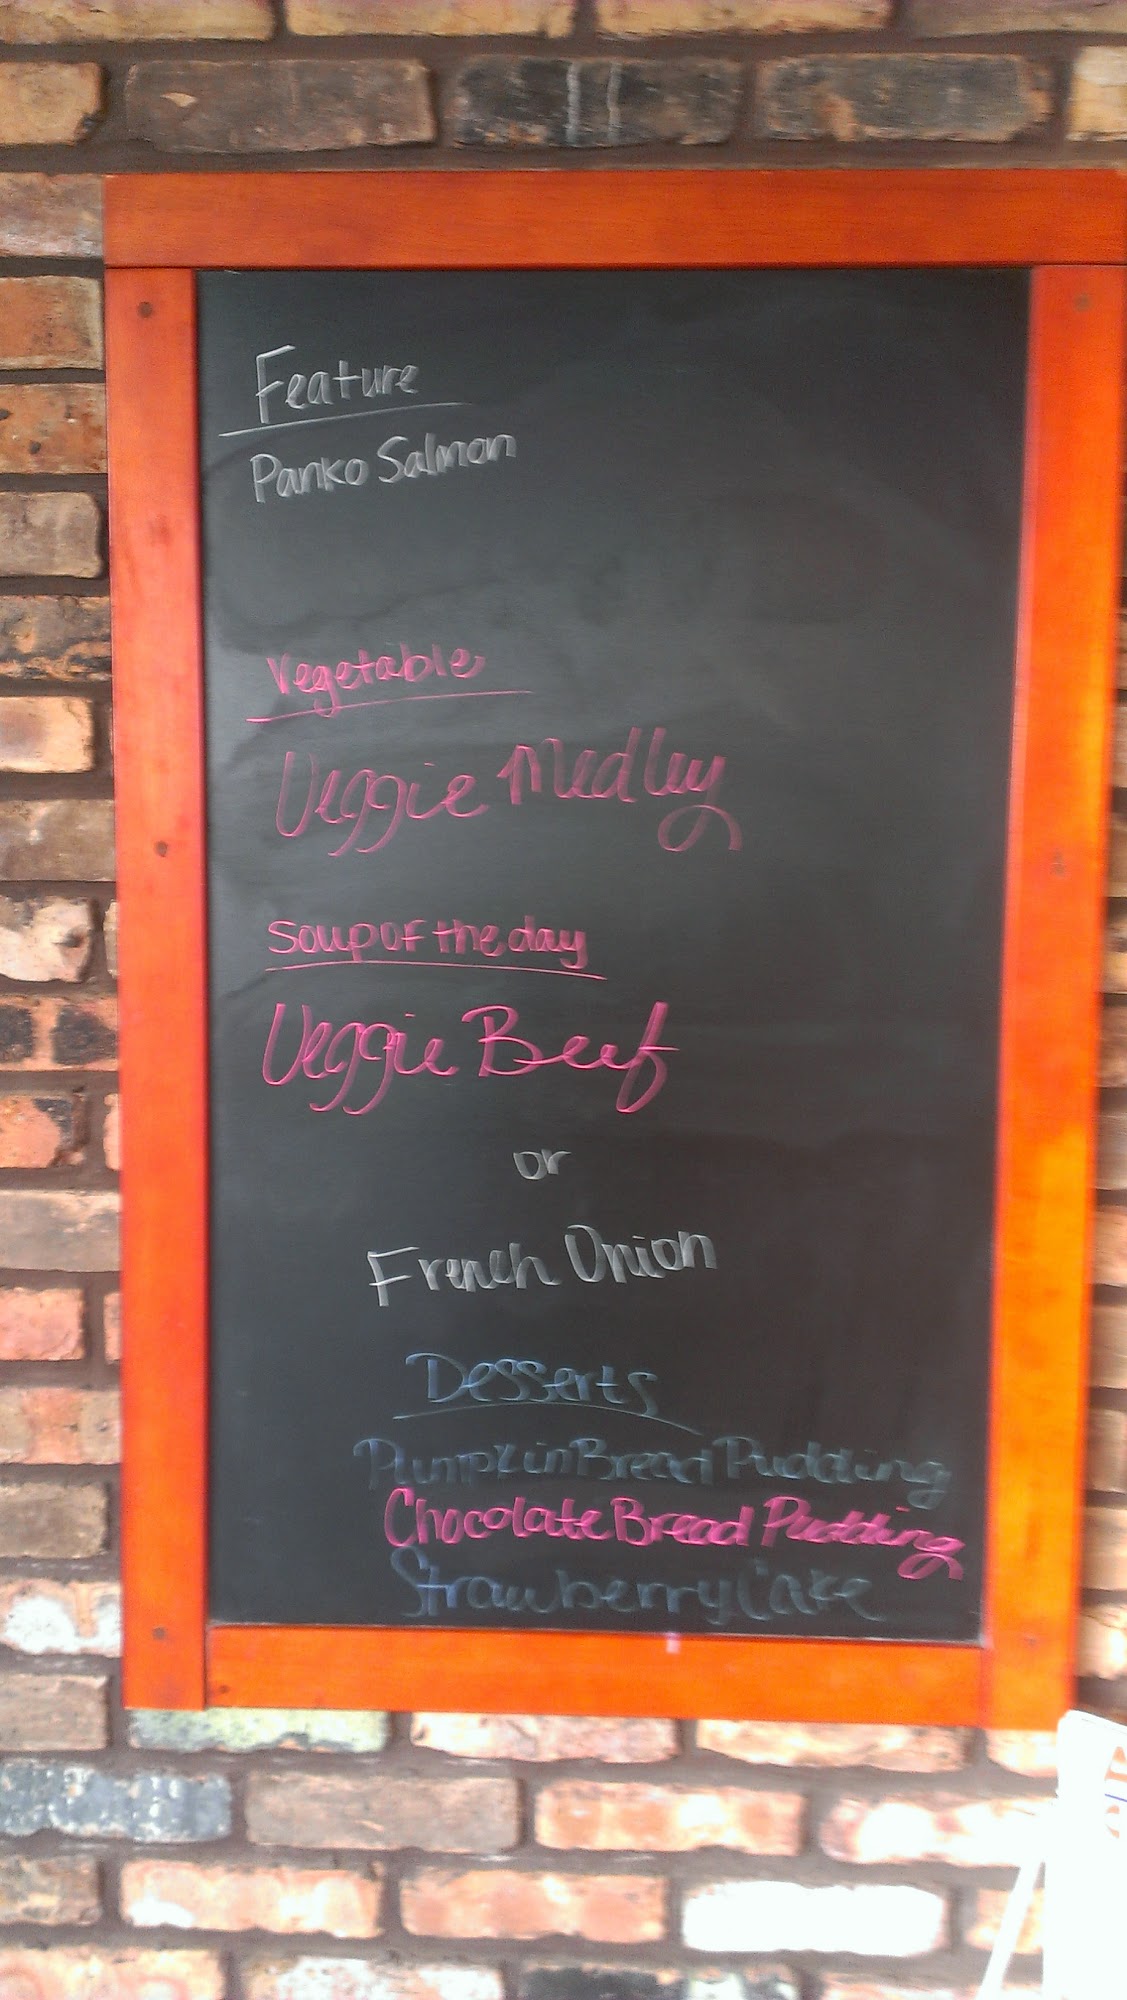 Feature
Panko Salmon
Vegetable
Veggie Medley
Soup of the day
Veggie Beef
or
French Onion
Desserts
Pumpkin Bread Pudding
Chocolate Bread Pudding
Strawberry Cake